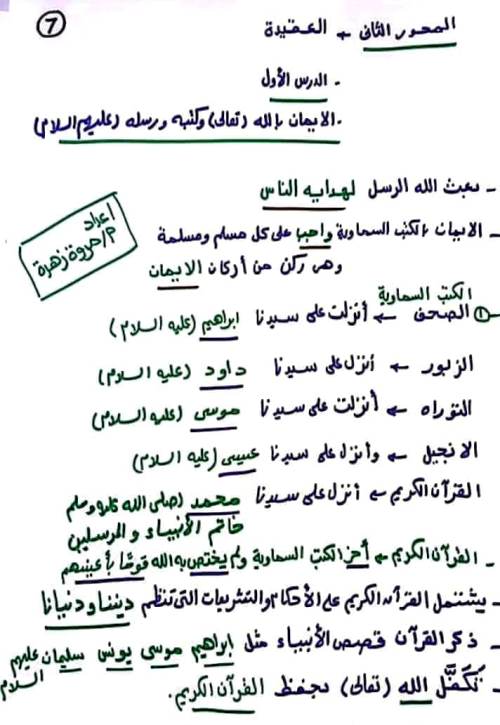 ٧
المحور الثانى ← العقيدة
- الدرس الأول
- الايمان بالله (تعالى) وكتبه ورسله (عليهم السلام)
- بعث الله الرسل لهدايه الناس
- الايمان بالكتب السماوية واجب على كل مسلم ومسلمة
وهى ركن من أركان الايمان
اعداد
م/مروة زهرة
الكتب السماوية
١- الصحف ← أنزلت على سيدنا ابراهيم (عليه السلام)
الزبور ← أنزل على سيدنا داود (عليه السلام)
التوراه ← أنزلت على سيدنا موسى (عليه السلام)
الانجيل ← وأنزل على سيدنا عيسى (عليه السلام)
القرآن الكريم ← أنزل على سيدنا محمد (صلى الله عليه وسلم
خاتم الأنبياء والمرسلين
- القرآن الكريم ← أخر الكتب السماوية ولم يختص به الله قومًا بأعينهم
- يشتمل القرآن الكريم على الأحكام والتشريعات التى تنظم ديننا ودنيانا
- ذكر القرآن قصص الأنبياء مثل ابراهيم موسى يونس سليمان عليهم
السلام
- تَكَفَّل الله (تعالى) بحفظ القرآن الكريم.